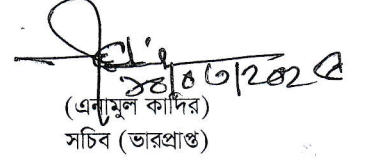 ১০/০৩/২০২৫
(এনামুল কাদির)
সচিব (ভারপ্রাপ্ত)